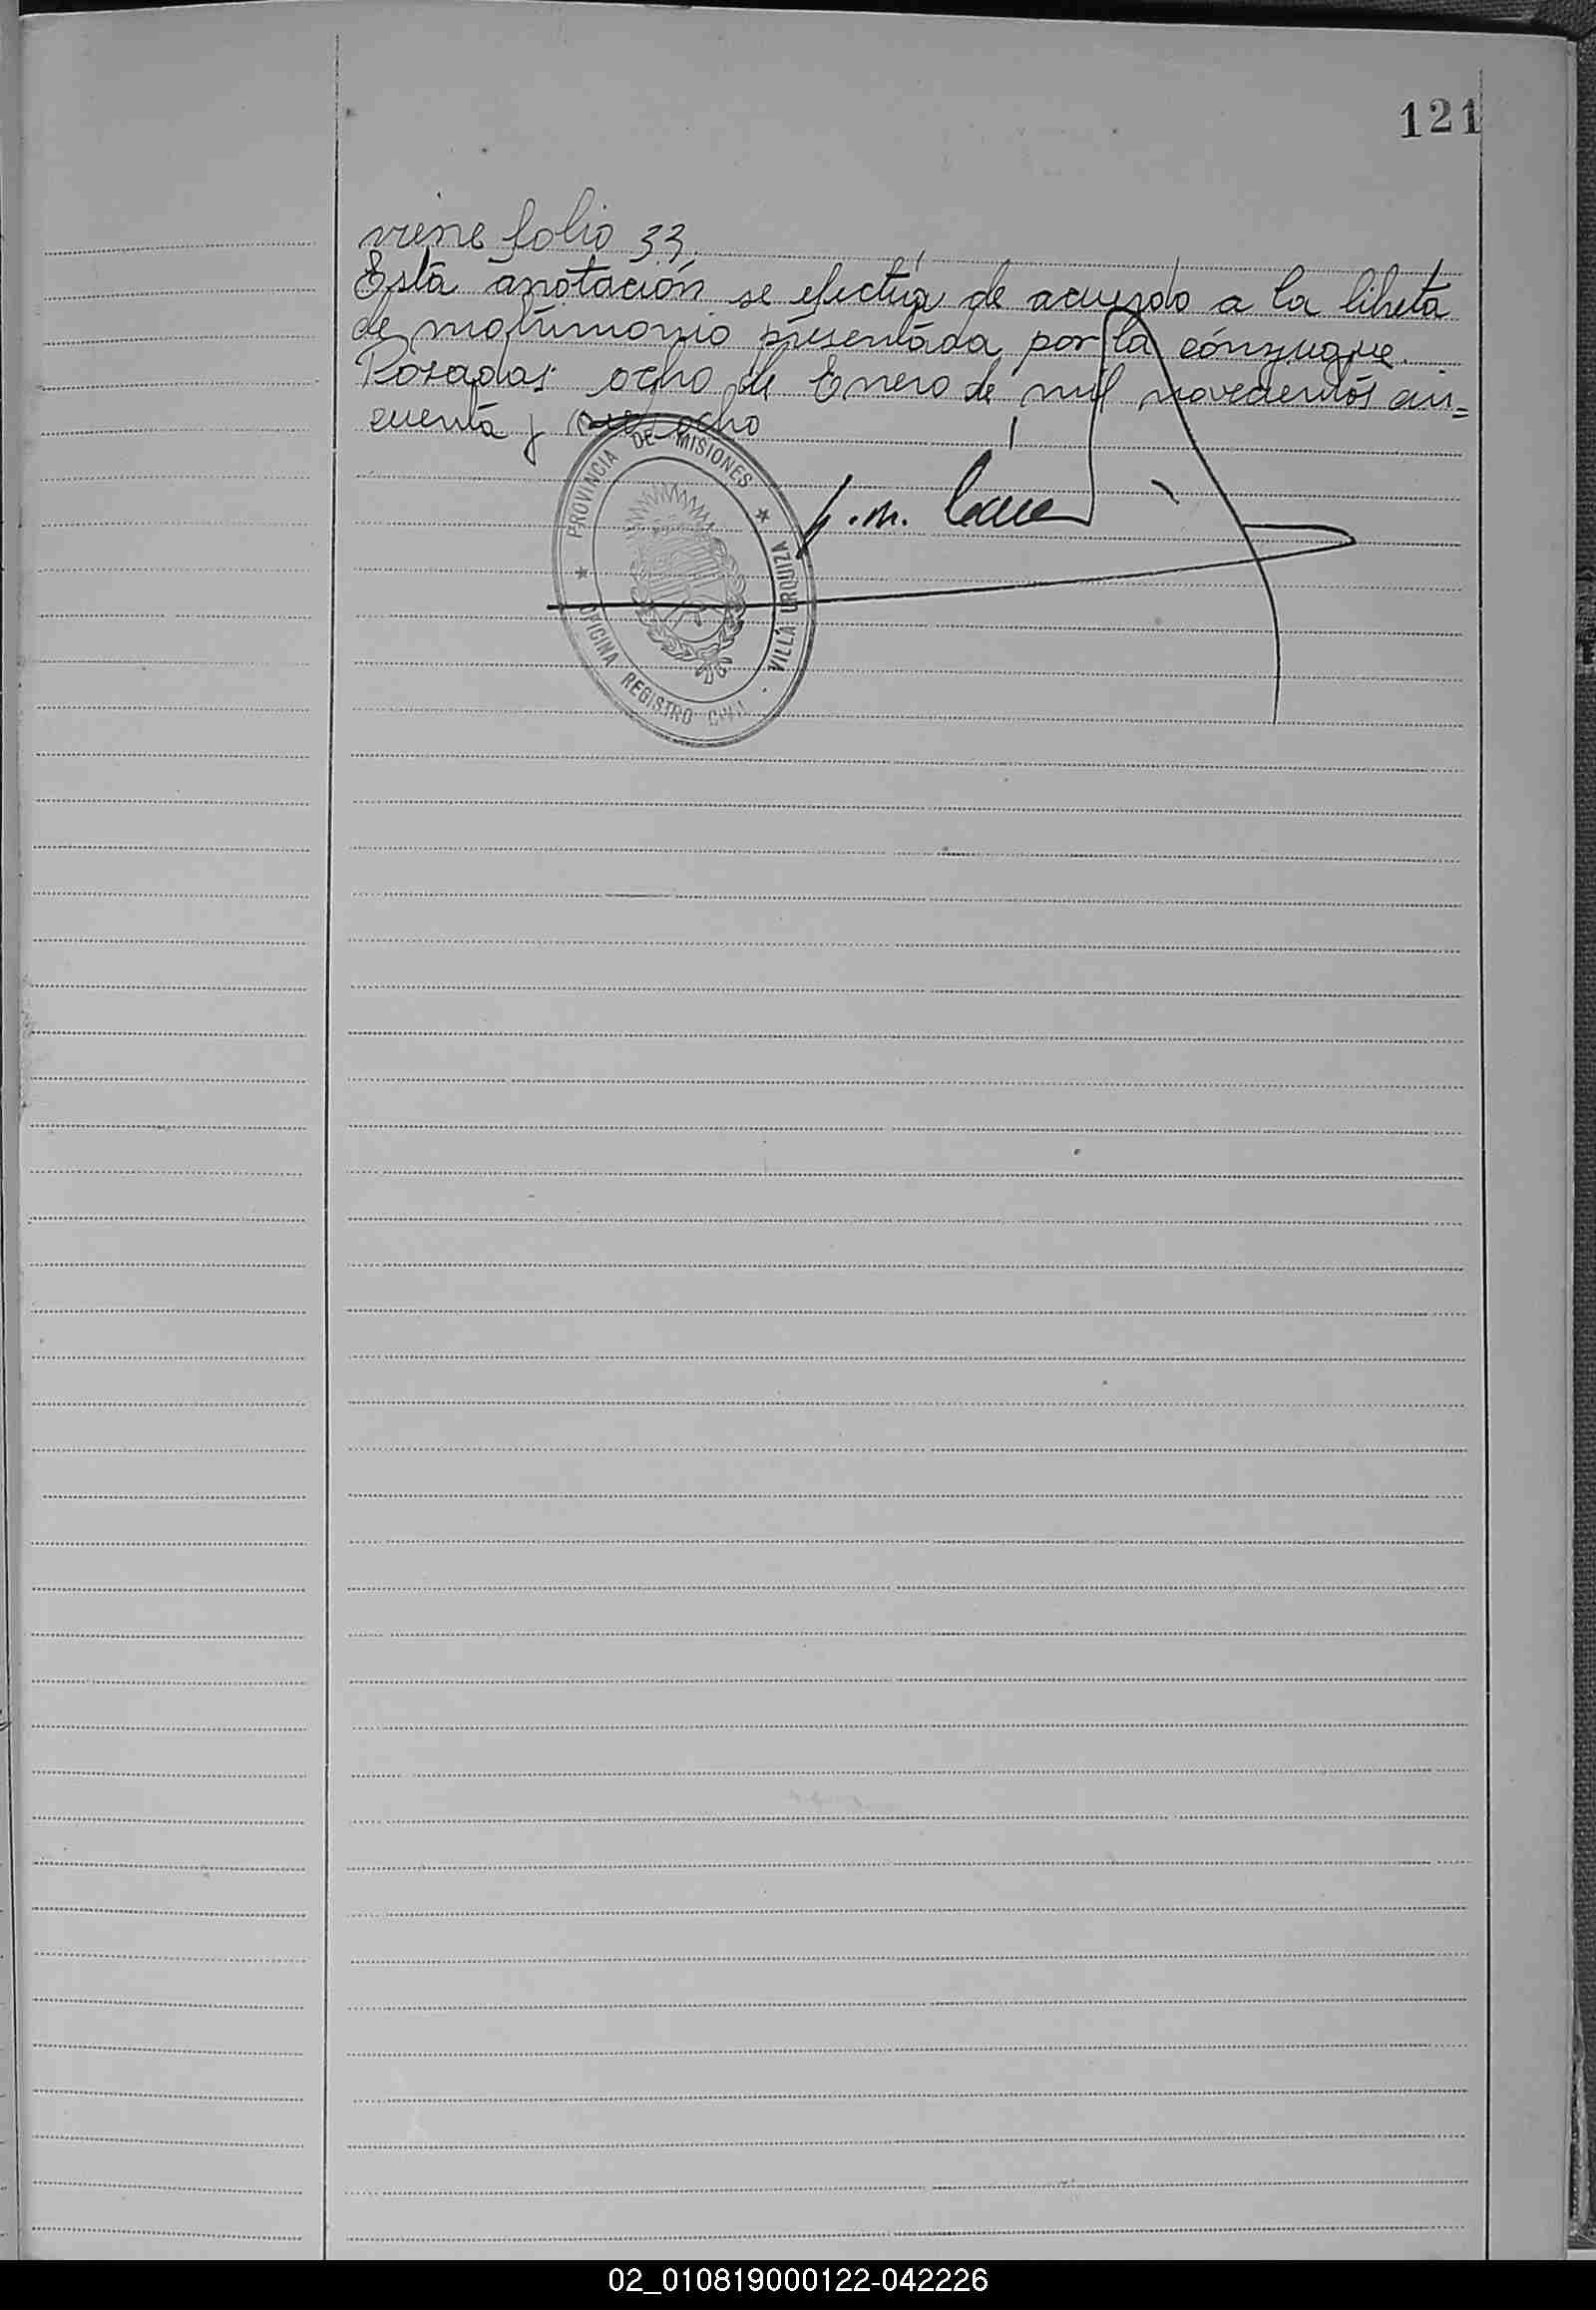 121
viene folio 33.
Esta anotación se efectúa de acuerdo a la libreta
de matrimonio presentada por la cónzugue.
Posadas ocho de Enero de mil novecientos cin=
cuenta y ocho
PROVINCIA DE MISIONES
VILLA URQUIZA
OFICINA REGISTRO CIVIL
02_010819000122-042226